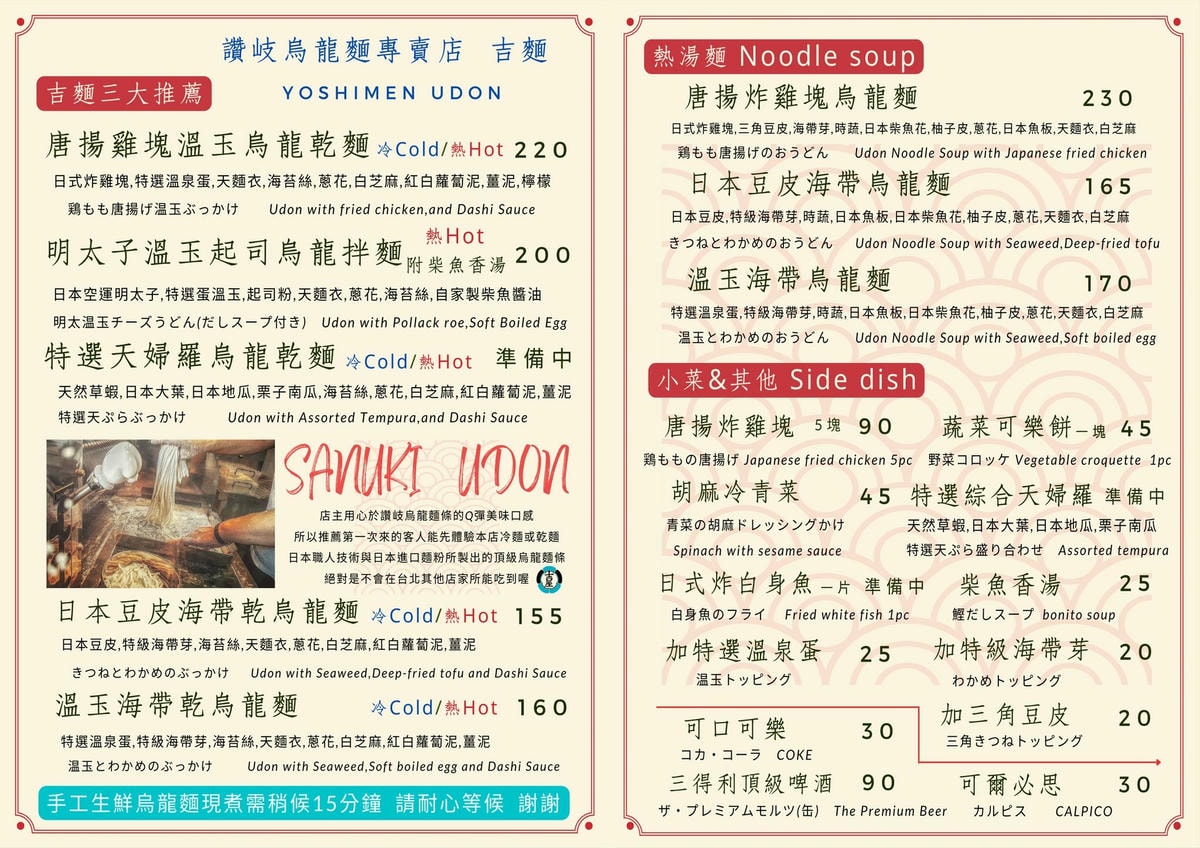 讚岐烏龍麵專賣店 吉麵
吉麵三大推薦
YOSHIMEN UDON
唐揚雞塊溫玉烏龍乾麵 冷Cold/熱Hot 220
日式炸雞塊,特選溫泉蛋,天麵衣,海苔絲,蔥花,白芝麻,紅白蘿蔔泥,薑泥,檸檬
鶏もも唐揚げ温玉ぶっかけ Udon with fried chicken,and Dashi Sauce
明太子溫玉起司烏龍拌麵 熱Hot 附柴魚香湯 200
日本空運明太子,特選蛋溫玉,起司粉,天麵衣,蔥花,海苔絲,自家製柴魚醬油
明太温玉チーズうどん(だしスープ付き) Udon with Pollack roe,Soft Boiled Egg
特選天婦羅烏龍乾麵 冷Cold/熱Hot 準備中
天然草蝦,日本大葉,日本地瓜,栗子南瓜,海苔絲,蔥花,白芝麻,紅白蘿蔔泥,薑泥
特選天ぷらぶっかけ Udon with Assorted Tempura,and Dashi Sauce
SANUKI UDON
店主用心於讚岐烏龍麵條的Q彈美味口感
所以推薦第一次來的客人能先體驗本店冷麵或乾麵
日本職人技術與日本進口麵粉所製出的頂級烏龍麵條
絕對是不會在台北其他店家所能吃到喔
日本豆皮海帶乾烏龍麵 冷Cold/熱Hot 155
日本豆皮,特級海帶芽,海苔絲,天麵衣,蔥花,白芝麻,紅白蘿蔔泥,薑泥
きつねとわかめのぶっかけ Udon with Seaweed,Deep-fried tofu and Dashi Sauce
溫玉海帶乾烏龍麵 冷Cold/熱Hot 160
特選溫泉蛋,特級海帶芽,海苔絲,天麵衣,蔥花,白芝麻,紅白蘿蔔泥,薑泥
温玉とわかめのぶっかけ Udon with Seaweed,Soft boiled egg and Dashi Sauce
手工生鮮烏龍麵現煮需稍候15分鐘 請耐心等候 謝謝
熱湯麵 Noodle soup
唐揚炸雞塊烏龍麵 230
日式炸雞塊,三角豆皮,海帶芽,時蔬,日本柴魚花,柚子皮,蔥花,日本魚板,天麵衣,白芝麻
鶏もも唐揚げのおうどん Udon Noodle Soup with Japanese fried chicken
日本豆皮海帶烏龍麵 165
日本豆皮,特級海帶芽,時蔬,日本魚板,日本柴魚花,柚子皮,蔥花,天麵衣,白芝麻
きつねとわかめのおうどん Udon Noodle Soup with Seaweed,Deep-fried tofu
溫玉海帶烏龍麵 170
特選溫泉蛋,特級海帶芽,時蔬,日本魚板,日本柴魚花,柚子皮,蔥花,天麵衣,白芝麻
温玉とわかめのおうどん Udon Noodle Soup with Seaweed,Soft boiled egg
小菜&其他 Side dish
唐揚炸雞塊 5塊 90
鶏ももの唐揚げ Japanese fried chicken 5pc
蔬菜可樂餅一塊 45
野菜コロッケ Vegetable croquette 1pc
胡麻冷青菜 45
青菜の胡麻ドレッシングかけ
Spinach with sesame sauce
特選綜合天婦羅 準備中
天然草蝦,日本大葉,日本地瓜,栗子南瓜
特選天ぷら盛り合わせ Assorted tempura
日式炸白身魚一片 準備中
白身魚のフライ Fried white fish 1pc
柴魚香湯 25
鰹だしスープ bonito soup
加特選溫泉蛋 25
温玉トッピング
加特級海帶芽 20
わかめトッピング
加三角豆皮 20
三角きつねトッピング
可口可樂 30
コカ・コーラ COKE
三得利頂級啤酒 90
ザ・プレミアムモルツ(缶) The Premium Beer
可爾必思 30
カルピス CALPICO